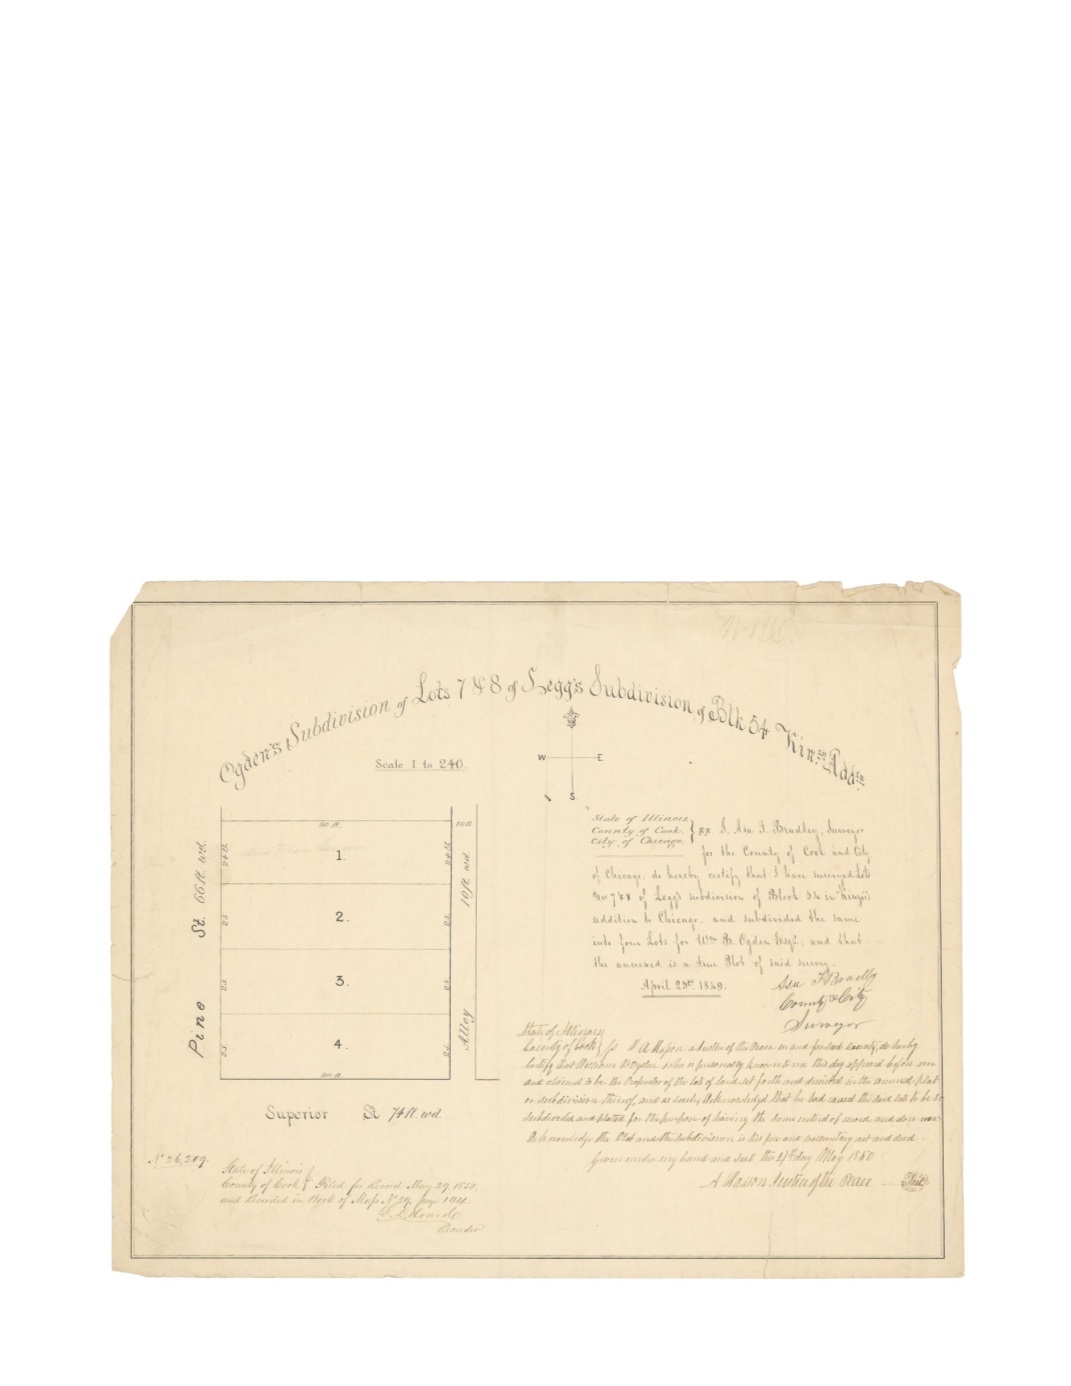 Ogden's Subdivision of Lots 7 & 8 of Legg's Subdivision of Blk 54 Kinzs Addn
Scale 1 to 240.
W E
S
100 ft. 10 ft.
24 ft. 1. 24 ft.
25 2. 25
25 3. 25
25 4. 25
100 ft.
Pine St. 66 ft. wd.
Alley 10 ft wd.
Superior St 74 ft. wd.
State of Illinois
County of Cook
City of Chicago
ss. I, Asa F. Bradley, Surveyor
for the County of Cook and City
of Chicago, do hereby certify that I have surveyed Lots
Nos 7 & 8 of Legg's subdivision of Block 54 in Kinzie's
addition to Chicago, and subdivided the same
into four Lots for Wm B. Ogden Esqr. and that
the annexed is a true Plot of said survey.
April 23rd 1849.
Asa F Bradley
County & City
Surveyor
State of Illinois
County of Cook ss I A Hasson a Justice of the Peace in and for said County, do hereby
Certify that William B Ogden who is personally known to me this day appeard before me
and claimed to be the Proprietor of the lots of land set forth and divided in the annexed plat
or subdivision thereof, and as such, Acknowledgd that he had caused the said lots to be so
subdivided and platted for the purpose of having the same entered of record and
Acknowledge the Plat and the subdivision is his free and voluntary act and deed
Given under my hand and seal this 27th day May 1850
A Hasson Justice of the Peace Seal
No 26,209.
State of Illinois
County of Cook Filed for Record May 29, 1850,
and Recorded in Book of Maps No 29, page 104
Recorder